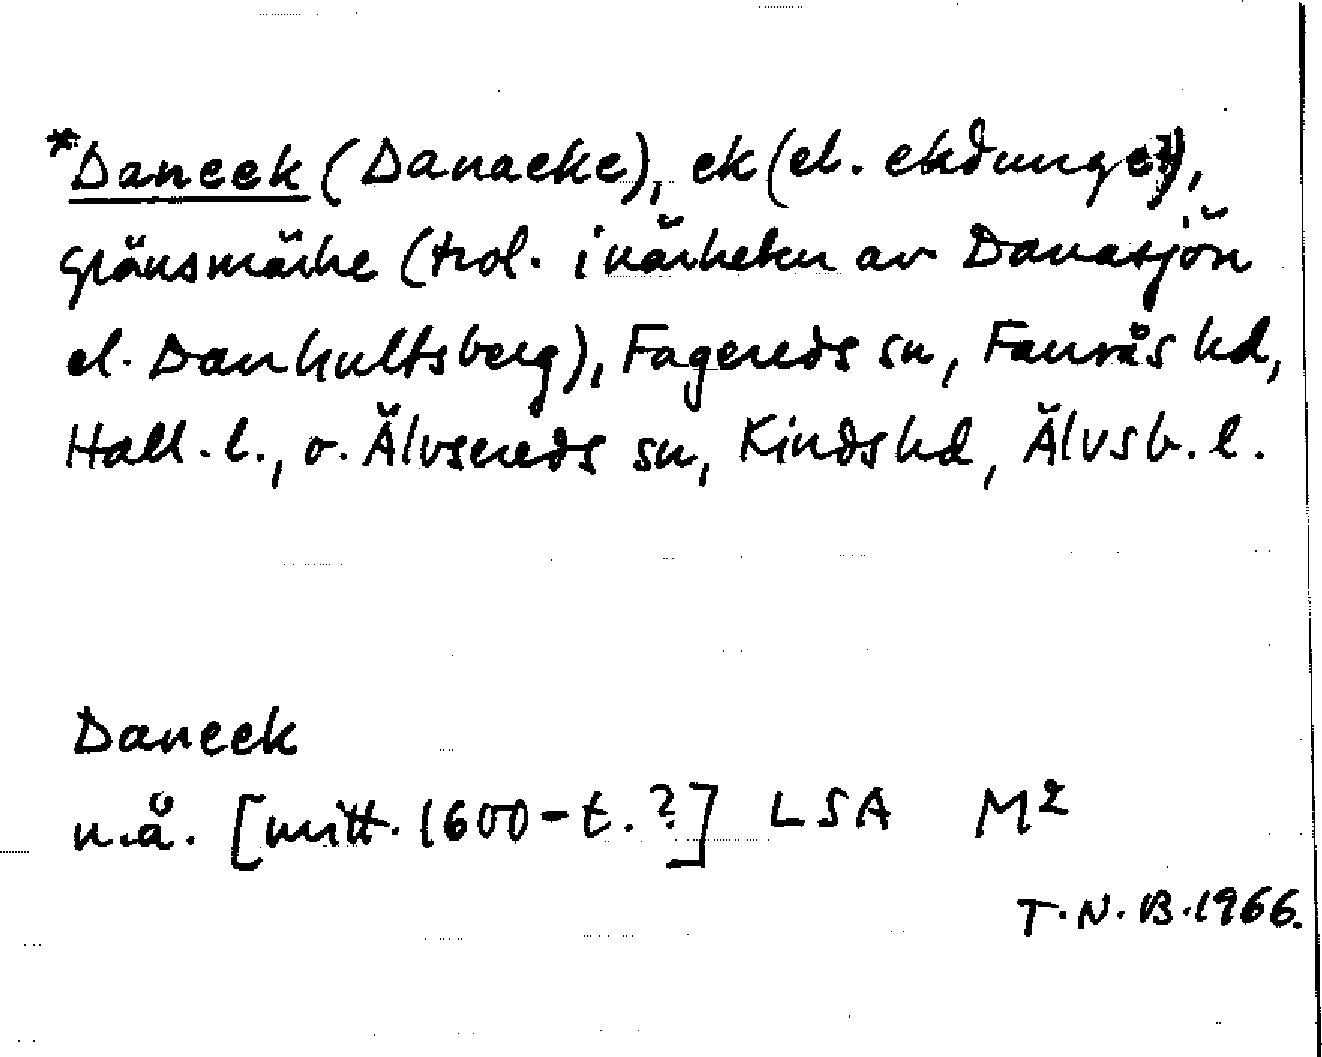 *Daneek (Danaeke), ek (el. ekdunge?),
gränsmärke (trol. i närheten av Danasjön
el. Danhultsberg), Fagereds sn, Faurås hd,
Hall. l., o. Älvsereds sn, Kinds hd, Älvsb. l.
Daneek
n.å. [mitt. 1600-t.?] LSA M²
T.N.B. 1966.